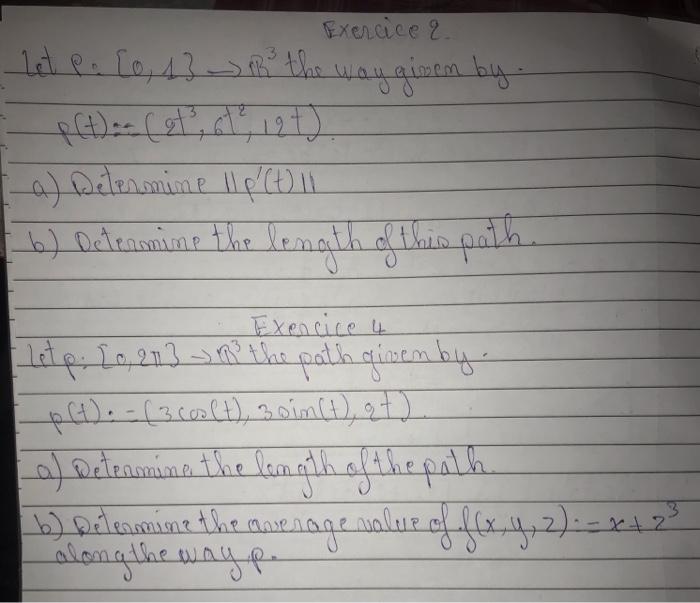 Exercice 2.
Let p: [0, 1] → ℝ³ the way given by.
p(t):=(2t³, 6t², 12t).
a) Determine ||p'(t)||
b) Determine the length of this path.
Exercice 4
Let p: [0, 2π] → ℝ³ the path given by.
p(t):=(3cos(t), 3sin(t), 2t).
a) Determine the length of the path.
b) Determine the average value of f(x, y, z):=x+z³
along the way p.